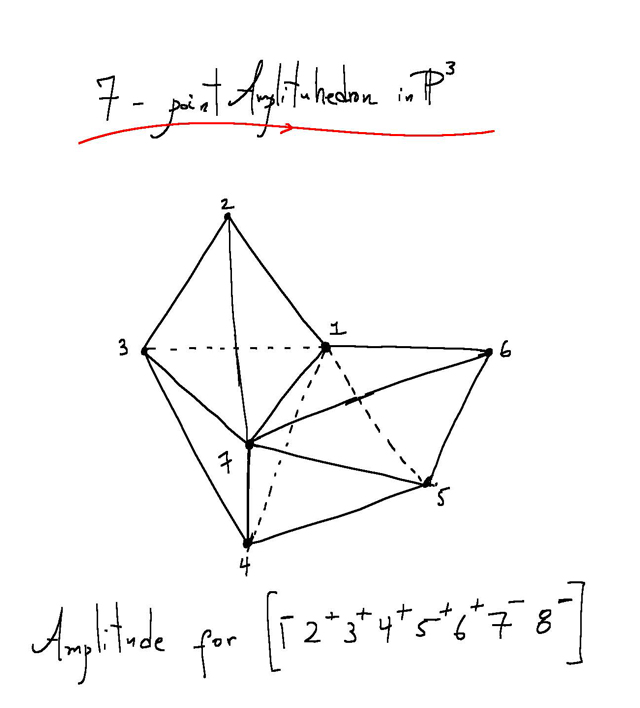 7 - point Amplituhedron in ℙ³
2
1
3
6
7
5
4
Amplitude for [1⁻ 2⁺ 3⁺ 4⁺ 5⁺ 6⁺ 7⁻ 8⁻]